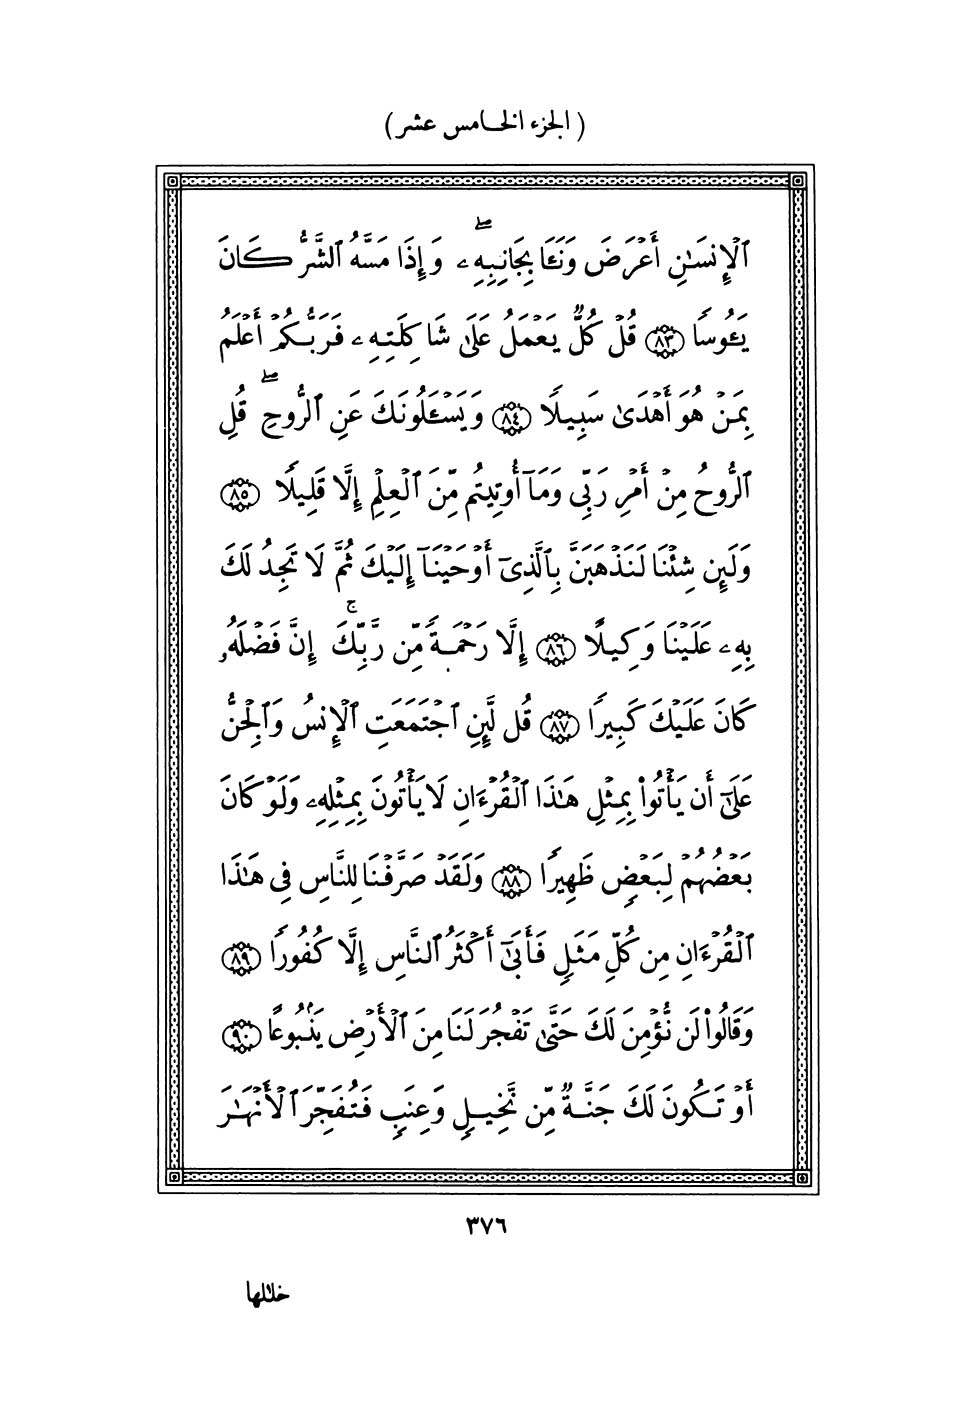 (الجزء الخامس عشر)
ٱلْإِنسَٰنِ أَعْرَضَ وَنَـَٔا بِجَانِبِهِۦ ۖ وَإِذَا مَسَّهُ ٱلشَّرُّ كَانَ
يَـُٔوسًا ﴿٨٣﴾ قُلْ كُلٌّ يَعْمَلُ عَلَىٰ شَاكِلَتِهِۦ فَرَبُّكُمْ أَعْلَمُ
بِمَنْ هُوَ أَهْدَىٰ سَبِيلًا ﴿٨٤﴾ وَيَسْـَٔلُونَكَ عَنِ ٱلرُّوحِ ۖ قُلِ
ٱلرُّوحُ مِنْ أَمْرِ رَبِّى وَمَآ أُوتِيتُم مِّنَ ٱلْعِلْمِ إِلَّا قَلِيلًا ﴿٨٥﴾
وَلَئِن شِئْنَا لَنَذْهَبَنَّ بِٱلَّذِىٓ أَوْحَيْنَآ إِلَيْكَ ثُمَّ لَا تَجِدُ لَكَ
بِهِۦ عَلَيْنَا وَكِيلًا ﴿٨٦﴾ إِلَّا رَحْمَةً مِّن رَّبِّكَ ۚ إِنَّ فَضْلَهُۥ
كَانَ عَلَيْكَ كَبِيرًا ﴿٨٧﴾ قُل لَّئِنِ ٱجْتَمَعَتِ ٱلْإِنسُ وَٱلْجِنُّ
عَلَىٰٓ أَن يَأْتُوا۟ بِمِثْلِ هَٰذَا ٱلْقُرْءَانِ لَا يَأْتُونَ بِمِثْلِهِۦ وَلَوْ كَانَ
بَعْضُهُمْ لِبَعْضٍ ظَهِيرًا ﴿٨٨﴾ وَلَقَدْ صَرَّفْنَا لِلنَّاسِ فِى هَٰذَا
ٱلْقُرْءَانِ مِن كُلِّ مَثَلٍ فَأَبَىٰٓ أَكْثَرُ ٱلنَّاسِ إِلَّا كُفُورًا ﴿٨٩﴾
وَقَالُوا۟ لَن نُّؤْمِنَ لَكَ حَتَّىٰ تَفْجُرَ لَنَا مِنَ ٱلْأَرْضِ يَنۢبُوعًا ﴿٩٠﴾
أَوْ تَكُونَ لَكَ جَنَّةٌ مِّن نَّخِيلٍ وَعِنَبٍ فَتُفَجِّرَ ٱلْأَنْهَٰرَ
٣٧٦
خلـٰلها